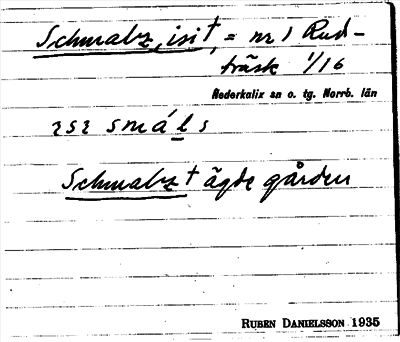 Schmalz, isit†, = nr 1 Rud-
träsk 1/16
Nederkalix sn o. tg. Norrb. län
ısı smáḻs
Schmalz† ägde gården
RUBEN DANIELSSON 1935